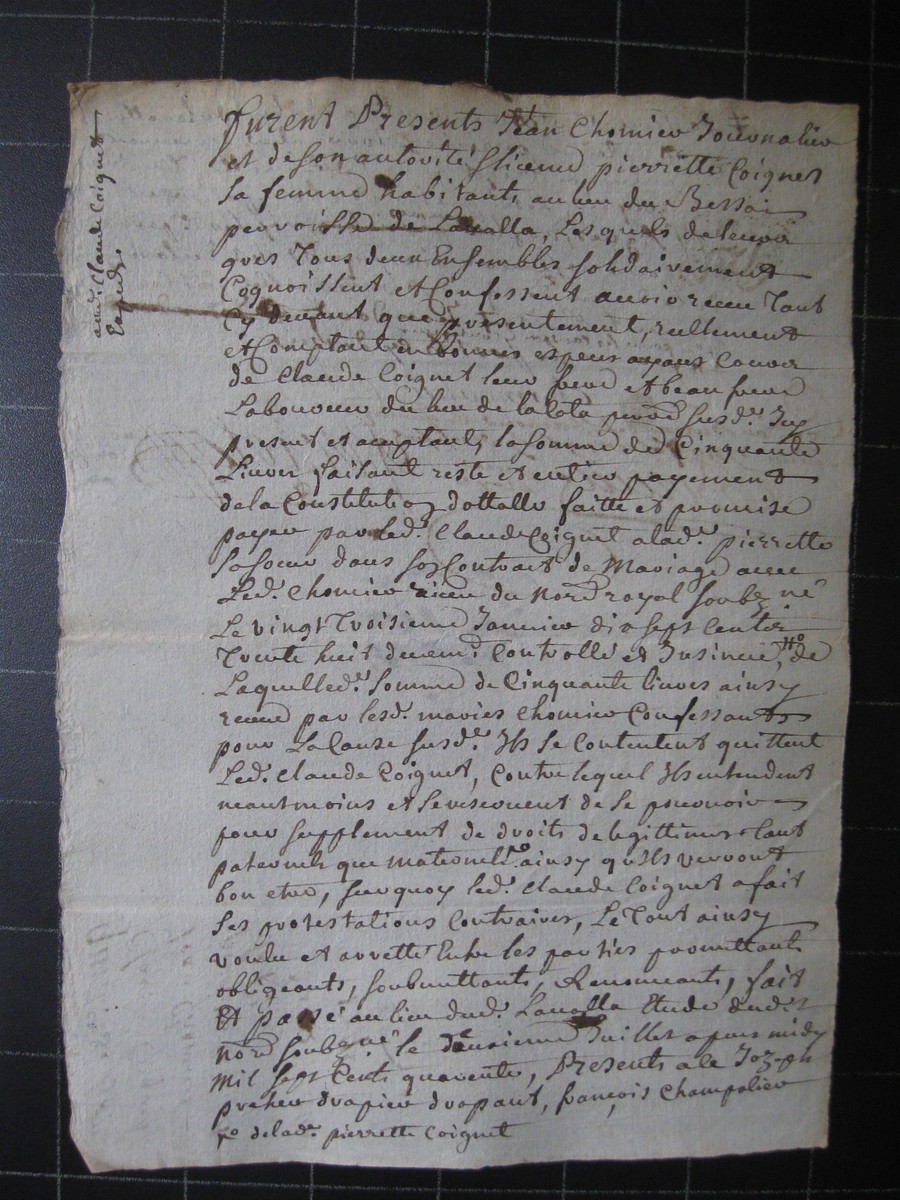 aud. Claude Coignet
Exped.
Furent Presents Jean Chomier Journalier
et de son autorité & licence pierrette Coignet
sa femme habitants au lieu du Bessai
perroisse de Lavalla, Lesquels de leurs
grés Tous deux Ensembles solidairement
Cognoissent et Confessent avoir receu Tant
Cy devant que présentement, reellement
et Comptant en bonnes especes ayans Cours
de Claude Coignet leur frere et beau frere
Laboureur du lieu de la perr. susd. Icy
present et aceptant, la somme de Cinquante
Livres faisant reste et entier payement
de la Constitution dottalle faitte et promise
payer par led. Claude Coignet alad. pierrette
sa soeur dans son Contrait de Mariage avec
Led. Chomier receu du Nore royal soubzné
Le vingt Troisieme Janvier dix sept Cents
Trente huit Controllé et Insinué, de
Laquelle d. somme de Cinquante livres ainsy
receue par lesd. mariés Chomier Confessants
pour La Cause susd. Ils se Contentent quittent
Led. Claude Coignet, Contre lequel Ils entendent
neantmoins et se reservent de se pourvoir
pour supplement de droits de legittimes tant
paternels que maternels ainsy quils verront
bon etre, surquoy led. Claude Coignet a fait
ses protestations Contraires, Le Tout ainsy
voulu et arretté Entre les parties promettants
obligeants, soubmettants, Renonceants, fait
Et passé au lieu dud. Lavalla Etude dud.
Nore soubzné le deuxieme Juillet apres midy
Mil sept Cents quarente, Presents a ce Jozeph
preher drapier drapant, françois Champalier
de lad. pierrette Coignet